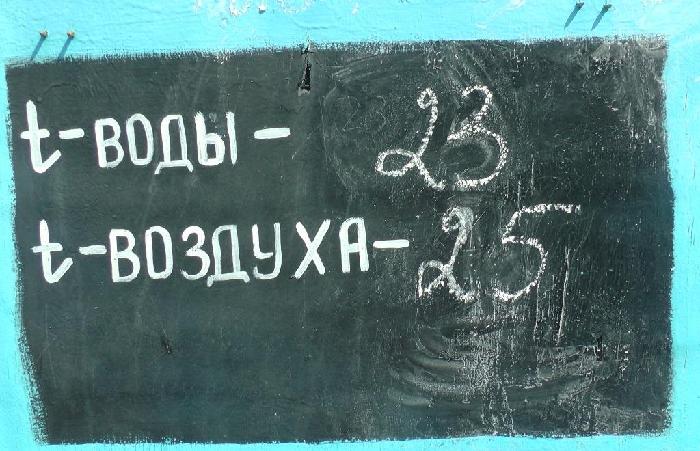 t-воды- 23
t-воздуха- 25